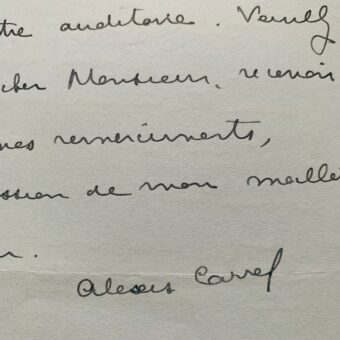 tre auditoire. Veuillez
cher Monsieur, recevoir
mes remerciements,
ssion de mon meille
r.
Alexis Carrel